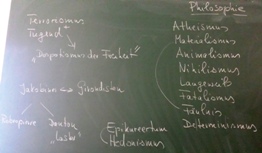 Terrorismus
Tugend
"Despotismus der Freiheit"
Jakobiner ↔ Girondisten
Robespierre
Danton
"Laster"
Epikureertum
Hedonismus
Philosophie
Atheismus
Materialismus
Animalismus
Nihilismus
Langeweile
Fatalismus
Fäulnis
Determinismus